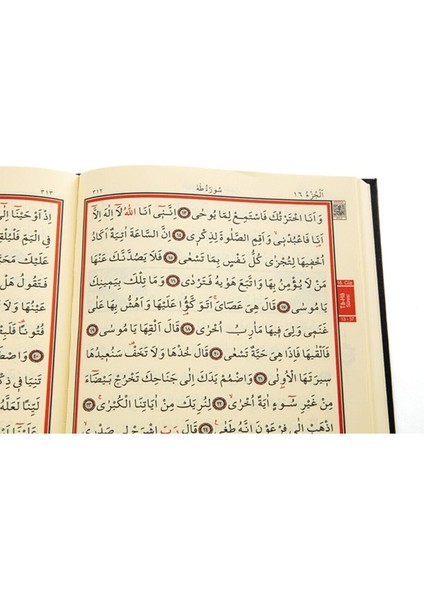 اَلْجُزْءُ ١٦ سُورَةُ طٰهٰ ٣١٢
وَاَنَا اخْتَرْتُكَ فَاسْتَمِعْ لِمَا يُوحٰى ﴿١٣﴾ اِنَّنٓي اَنَا اللّٰهُ لَٓا اِلٰهَ اِلَّٓا
اَنَا۬ فَاعْبُدْنٖي وَاَقِمِ الصَّلٰوةَ لِذِكْرٖي ﴿١٤﴾ اِنَّ السَّاعَةَ اٰتِيَةٌ اَكَادُ
اُخْفٖيهَا لِتُجْزٰى كُلُّ نَفْسٍ بِمَا تَسْعٰى ﴿١٥﴾ فَلَا يَصُدَّنَّكَ عَنْهَا
مَنْ لَا يُؤْمِنُ بِهَا وَاتَّبَعَ هَوٰيهُ فَتَرْدٰى ﴿١٦﴾ وَمَا تِلْكَ بِيَمٖينِكَ
يَا مُوسٰى ﴿١٧﴾ قَالَ هِيَ عَصَايَۚ اَتَوَكَّؤُ۬ا عَلَيْهَا وَاَهُشُّ بِهَا عَلٰى
غَنَمٖي وَلِيَ فٖيهَا مَاٰرِبُ اُخْرٰى ﴿١٨﴾ قَالَ اَلْقِهَا يَا مُوسٰى ﴿١٩﴾
فَاَلْقٰيهَا فَاِذَا هِيَ حَيَّةٌ تَسْعٰى ﴿٢٠﴾ قَالَ خُذْهَا وَلَا تَخَفْ سَنُعٖيدُهَا
سٖيرَتَهَا الْاُو۫لٰى ﴿٢١﴾ وَاضْمُمْ يَدَكَ اِلٰى جَنَاحِكَ تَخْرُجْ بَيْضَٓاءَ
مِنْ غَيْرِ سُٓوءٍ اٰيَةً اُخْرٰى ﴿٢٢﴾ لِنُرِيَكَ مِنْ اٰيَاتِنَا الْكُبْرٰى ﴿٢٣﴾
اِذْهَبْ اِلٰى فِرْعَوْنَ اِنَّهُ طَغٰى ﴿٢٤﴾ قَالَ رَبِّ اشْرَحْ لٖي صَدْرٖي
Tâ-Hâ
٣١٣
اِذْ اَوْحَيْنَٓا اِلٰٓى
فِي الْيَمِّ فَلْيُلْقِهِ
عَلَيْكَ مَحَ
فَتَقُولُ هَلْ